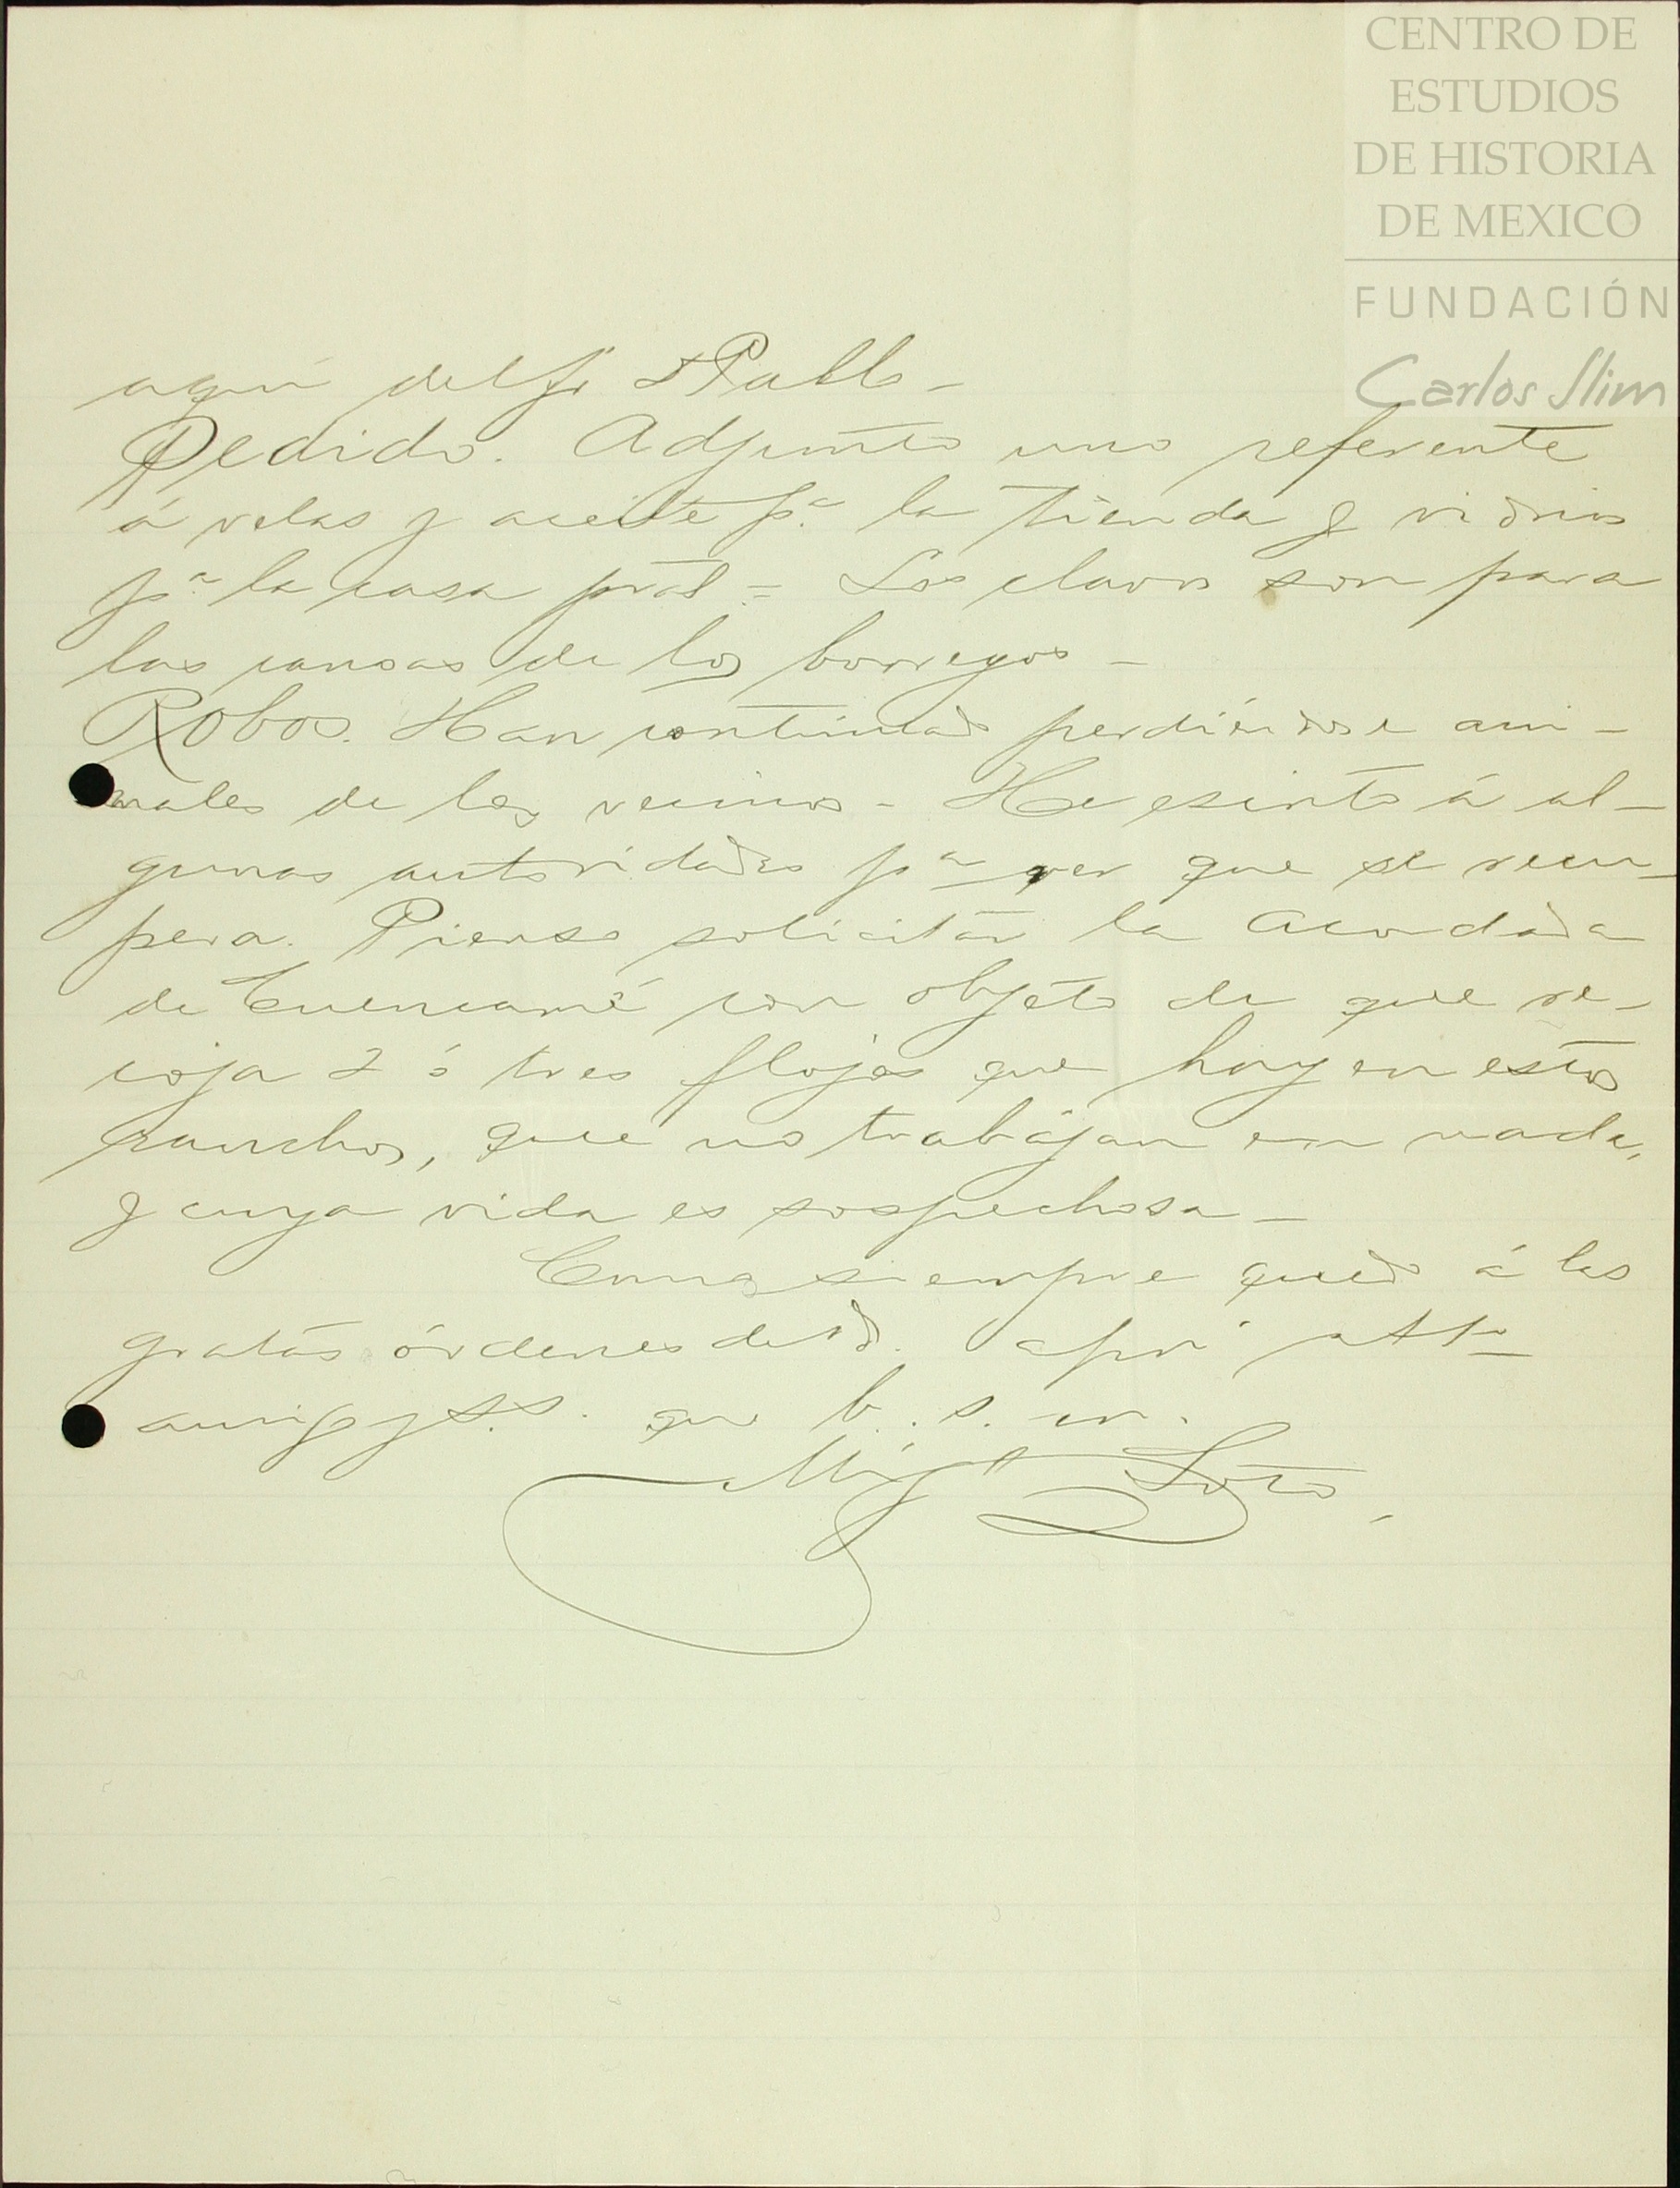 CENTRO DE
ESTUDIOS
DE HISTORIA
DE MEXICO
FUNDACIÓN
Carlos Slim
aquí del Sr Pablo -
Pedido. Adjunto uno referente
á velas y aceite pª la tienda y vidrios
pª la casa pral = Los clavos son para
las canoas de los borregos -
Robos. Han continuado perdiéndose ani-
males de los vecinos - He escrito á al-
gunas autoridades pª ver que se recu-
pera. Pienso solicitar la Acordada
de Cuencamé con objeto de que re-
coja 2 ó tres flojos que hay en estos
ranchos, que no trabajan en nada,
y cuya vida es sospechosa -
Como siempre quedo á las
gratas órdenes de Ud. atto
amigo y S.S. que b. s. m.
Migl Soto.